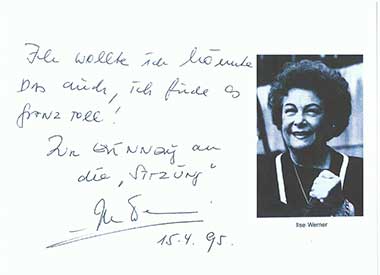 Ich wollte ich könnte
das auch, ich finde es
ganz toll!
Zur Erinnerung an
die „Sitzung"
15.4.95.
Ilse Werner